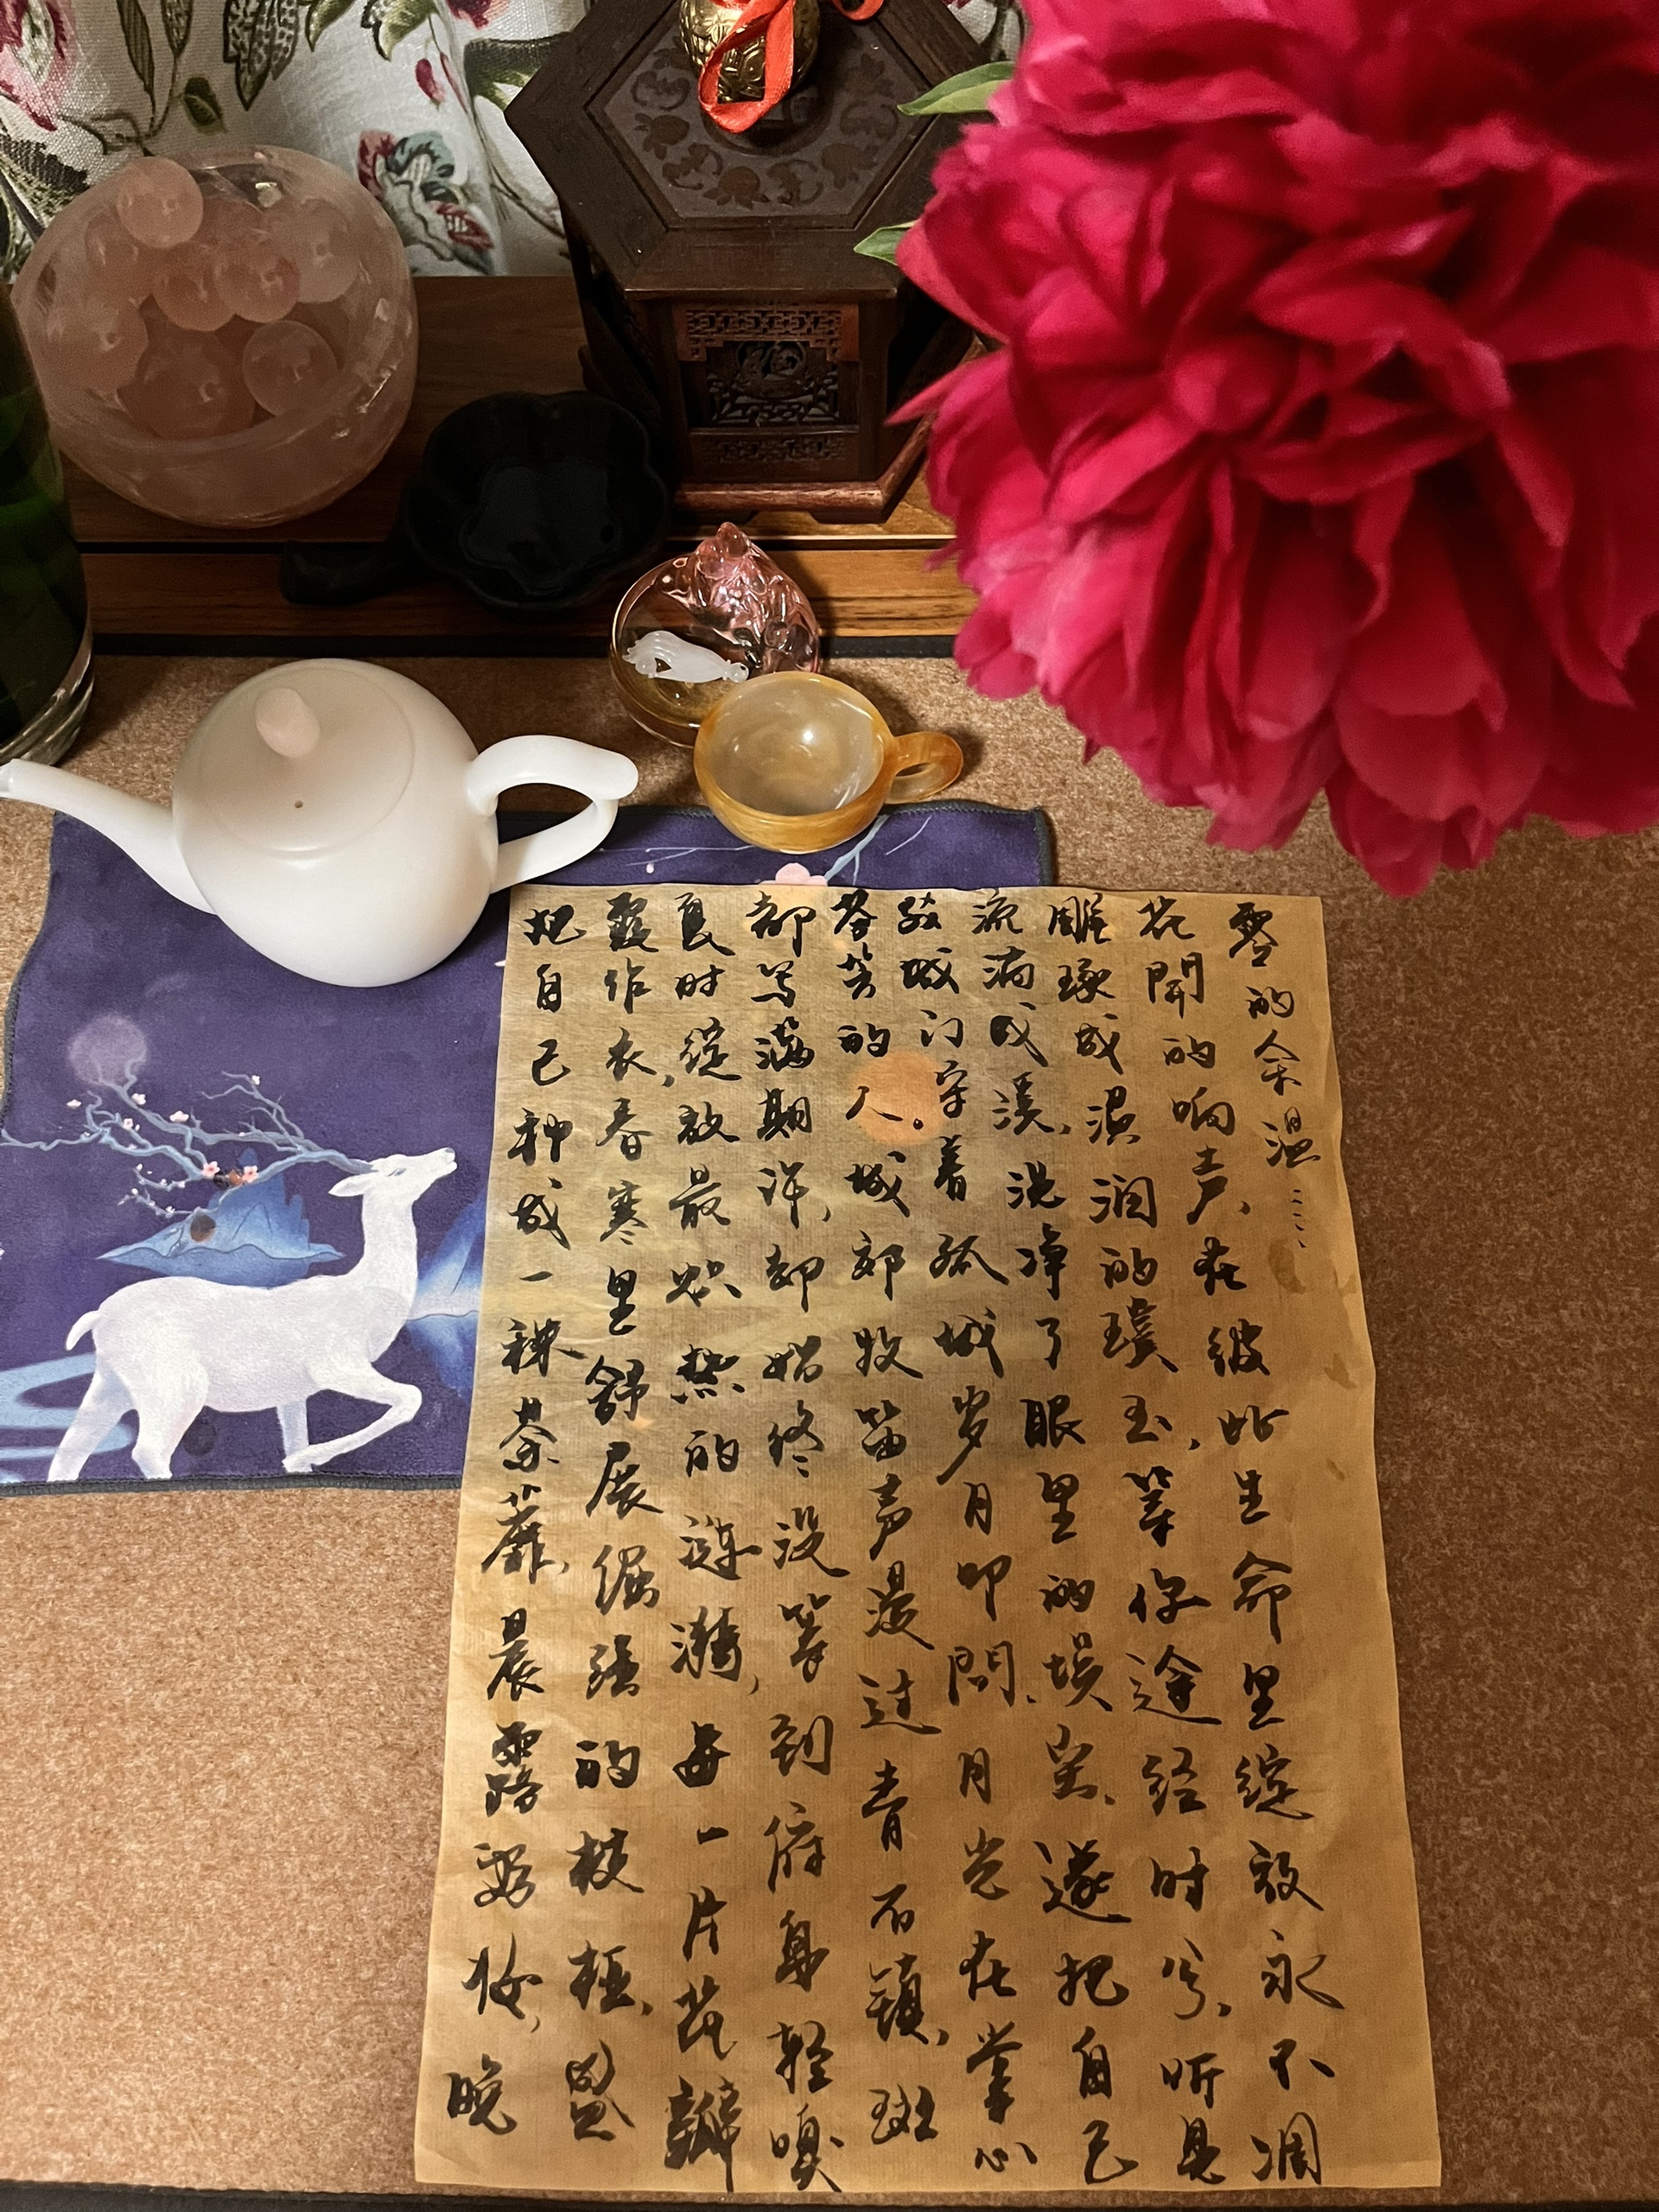 把自己种成一株荼蘼,晨露为妆,晚
霞作衣,春寒里舒展倔强的枝桠,盈
良时绽放最炽热的涟漪,每一片花瓣
都写满期许,却始终没等到俯身轻嗅
芬芳的人。城郊牧笛声漫过青石镇,斑
驳城门守着孤城岁月叩問,月光在掌心
流满成溪,洗净了眼里的埃尘,遂把自己
雕琢成温润的璞玉,等你途经时兮,听見
花開的响声,在彼此生命里绽放永不凋
零的余温……